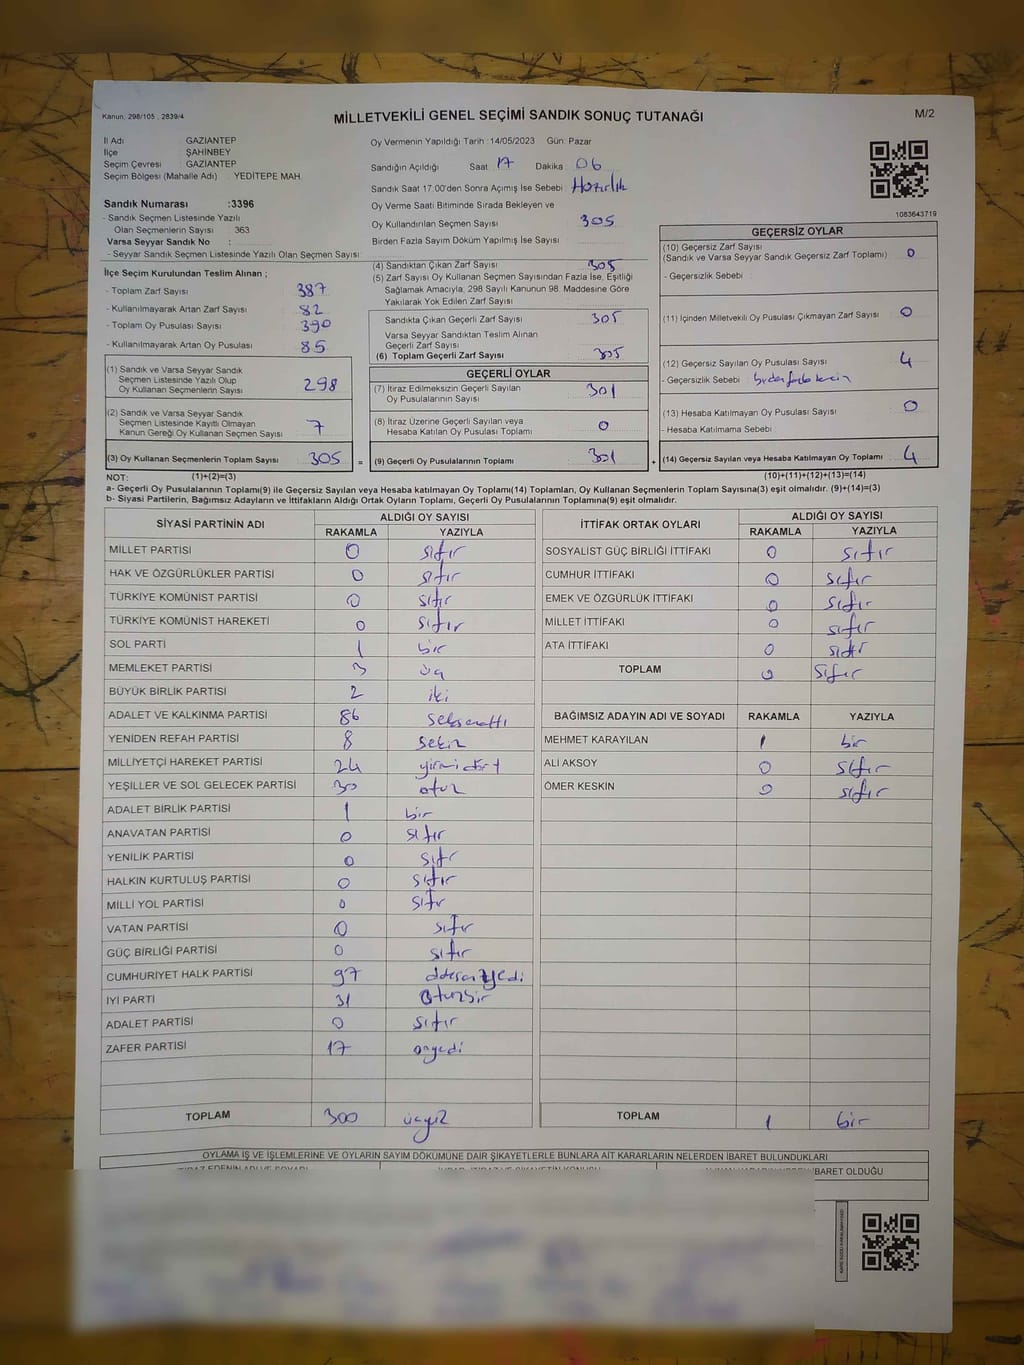 Kanun, 298/105 , 2839/4
MİLLETVEKİLİ GENEL SEÇİMİ SANDIK SONUÇ TUTANAĞI
M/2
İl Adı GAZİANTEP
İlçe ŞAHİNBEY
Seçim Çevresi GAZİANTEP
Seçim Bölgesi (Mahalle Adı) : YEDİTEPE MAH.
Sandık Numarası :3396
- Sandık Seçmen Listesinde Yazılı
Olan Seçmenlerin Sayısı : 363
Varsa Seyyar Sandık No :
- Seyyar Sandık Seçmen Listesinde Yazılı Olan Seçmen Sayısı
Oy Vermenin Yapıldığı Tarih :14/05/2023 Gün: Pazar
Sandığın Açıldığı Saat 17 Dakika 06
Sandık Saat 17:00'den Sonra Açımış İse Sebebi Hazırlık
Oy Verme Saati Bitiminde Sırada Bekleyen ve
Oy Kullandırılan Seçmen Sayısı 305
Birden Fazla Sayım Döküm Yapılmış İse Sayısı
1083643719
İlçe Seçim Kurulundan Teslim Alınan ;
- Toplam Zarf Sayısı 387
- Kullanılmayarak Artan Zarf Sayısı 82
- Toplam Oy Pusulası Sayısı 390
- Kullanılmayarak Artan Oy Pusulası 85
(1) Sandık ve Varsa Seyyar Sandık
Seçmen Listesinde Yazılı Olup
Oy Kullanan Seçmenlerin Sayısı 298
(2) Sandık ve Varsa Seyyar Sandık
Seçmen Listesinde Kayıtlı Olmayan
Kanun Gereği Oy Kullanan Seçmen Sayısı 7
(3) Oy Kullanan Seçmenlerin Toplam Sayısı 305 =
(4) Sandıktan Çıkan Zarf Sayısı 305
(5) Zarf Sayısı Oy Kullanan Seçmen Sayısından Fazla İse, Eşitliği
Sağlamak Amacıyla, 298 Sayılı Kanunun 98. Maddesine Göre
Yakılarak Yok Edilen Zarf Sayısı
Sandıkta Çıkan Geçerli Zarf Sayısı 305
Varsa Seyyar Sandıktan Teslim Alınan
Geçerli Zarf Sayısı
(6) Toplam Geçerli Zarf Sayısı 305
GEÇERLİ OYLAR
(7) İtiraz Edilmeksizin Geçerli Sayılan
Oy Pusulalarının Sayısı 301
(8) İtiraz Üzerine Geçerli Sayılan veya
Hesaba Katılan Oy Pusulası Toplamı 0
(9) Geçerli Oy Pusulalarının Toplamı 301 +
GEÇERSİZ OYLAR
(10) Geçersiz Zarf Sayısı
(Sandık ve Varsa Seyyar Sandık Geçersiz Zarf Toplamı) 0
- Geçersizlik Sebebi
(11) İçinden Milletvekili Oy Pusulası Çıkmayan Zarf Sayısı 0
(12) Geçersiz Sayılan Oy Pusulası Sayısı 4
- Geçersizlik Sebebi :
(13) Hesaba Katılmayan Oy Pusulası Sayısı 0
- Hesaba Katılmama Sebebi
(14) Geçersiz Sayılan veya Hesaba Katılmayan Oy Toplamı 4
NOT: (1)+(2)=(3)
(10)+(11)+(12)+(13)=(14)
a- Geçerli Oy Pusulalarının Toplamı(9) ile Geçersiz Sayılan veya Hesaba katılmayan Oy Toplamı(14) Toplamları, Oy Kullanan Seçmenlerin Toplam Sayısına(3) eşit olmalıdır. (9)+(14)=(3)
b- Siyasi Partilerin, Bağımsız Adayların ve İttifakların Aldığı Ortak Oyların Toplamı, Geçerli Oy Pusulalarının Toplamına(9) eşit olmalıdır.
SİYASİ PARTİNİN ADI ALDIĞI OY SAYISI
RAKAMLA YAZIYLA
MİLLET PARTİSİ 0 sıfır
HAK VE ÖZGÜRLÜKLER PARTİSİ 0 sıfır
TÜRKİYE KOMÜNİST PARTİSİ 0 sıfır
TÜRKİYE KOMÜNİST HAREKETİ 0 sıfır
SOL PARTİ 1 bir
MEMLEKET PARTİSİ 3 üç
BÜYÜK BİRLİK PARTİSİ 2 iki
ADALET VE KALKINMA PARTİSİ 86 seksenaltı
YENİDEN REFAH PARTİSİ 8 sekiz
MİLLİYETÇİ HAREKET PARTİSİ 24 yirmidört
YEŞİLLER VE SOL GELECEK PARTİSİ 30 otuz
ADALET BİRLİK PARTİSİ 1 bir
ANAVATAN PARTİSİ 0 sıfır
YENİLİK PARTİSİ 0 sıfır
HALKIN KURTULUŞ PARTİSİ 0 sıfır
MİLLİ YOL PARTİSİ 0 sıfır
VATAN PARTİSİ 0 sıfır
GÜÇ BİRLİĞİ PARTİSİ 0 sıfır
CUMHURİYET HALK PARTİSİ 97 doksanyedi
İYİ PARTİ 31 otuzbir
ADALET PARTİSİ 0 sıfır
ZAFER PARTİSİ 17 onyedi
TOPLAM 300 üçyüz
İTTİFAK ORTAK OYLARI ALDIĞI OY SAYISI
RAKAMLA YAZIYLA
SOSYALİST GÜÇ BİRLİĞİ İTTİFAKI 0 sıfır
CUMHUR İTTİFAKI 0 sıfır
EMEK VE ÖZGÜRLÜK İTTİFAKI 0 sıfır
MİLLET İTTİFAKI 0 sıfır
ATA İTTİFAKI 0 sıfır
TOPLAM 0 sıfır
BAĞIMSIZ ADAYIN ADI VE SOYADI RAKAMLA YAZIYLA
MEHMET KARAYILAN 1 bir
ALİ AKSOY 0 sıfır
ÖMER KESKİN 0 sıfır
TOPLAM 1 bir
OYLAMA İŞ VE İŞLEMLERİNE VE OYLARIN SAYIM DÖKÜMÜNE DAİR ŞİKAYETLERLE BUNLARA AİT KARARLARIN NELERDEN İBARET BULUNDUKLARI
İBARET OLDUĞU